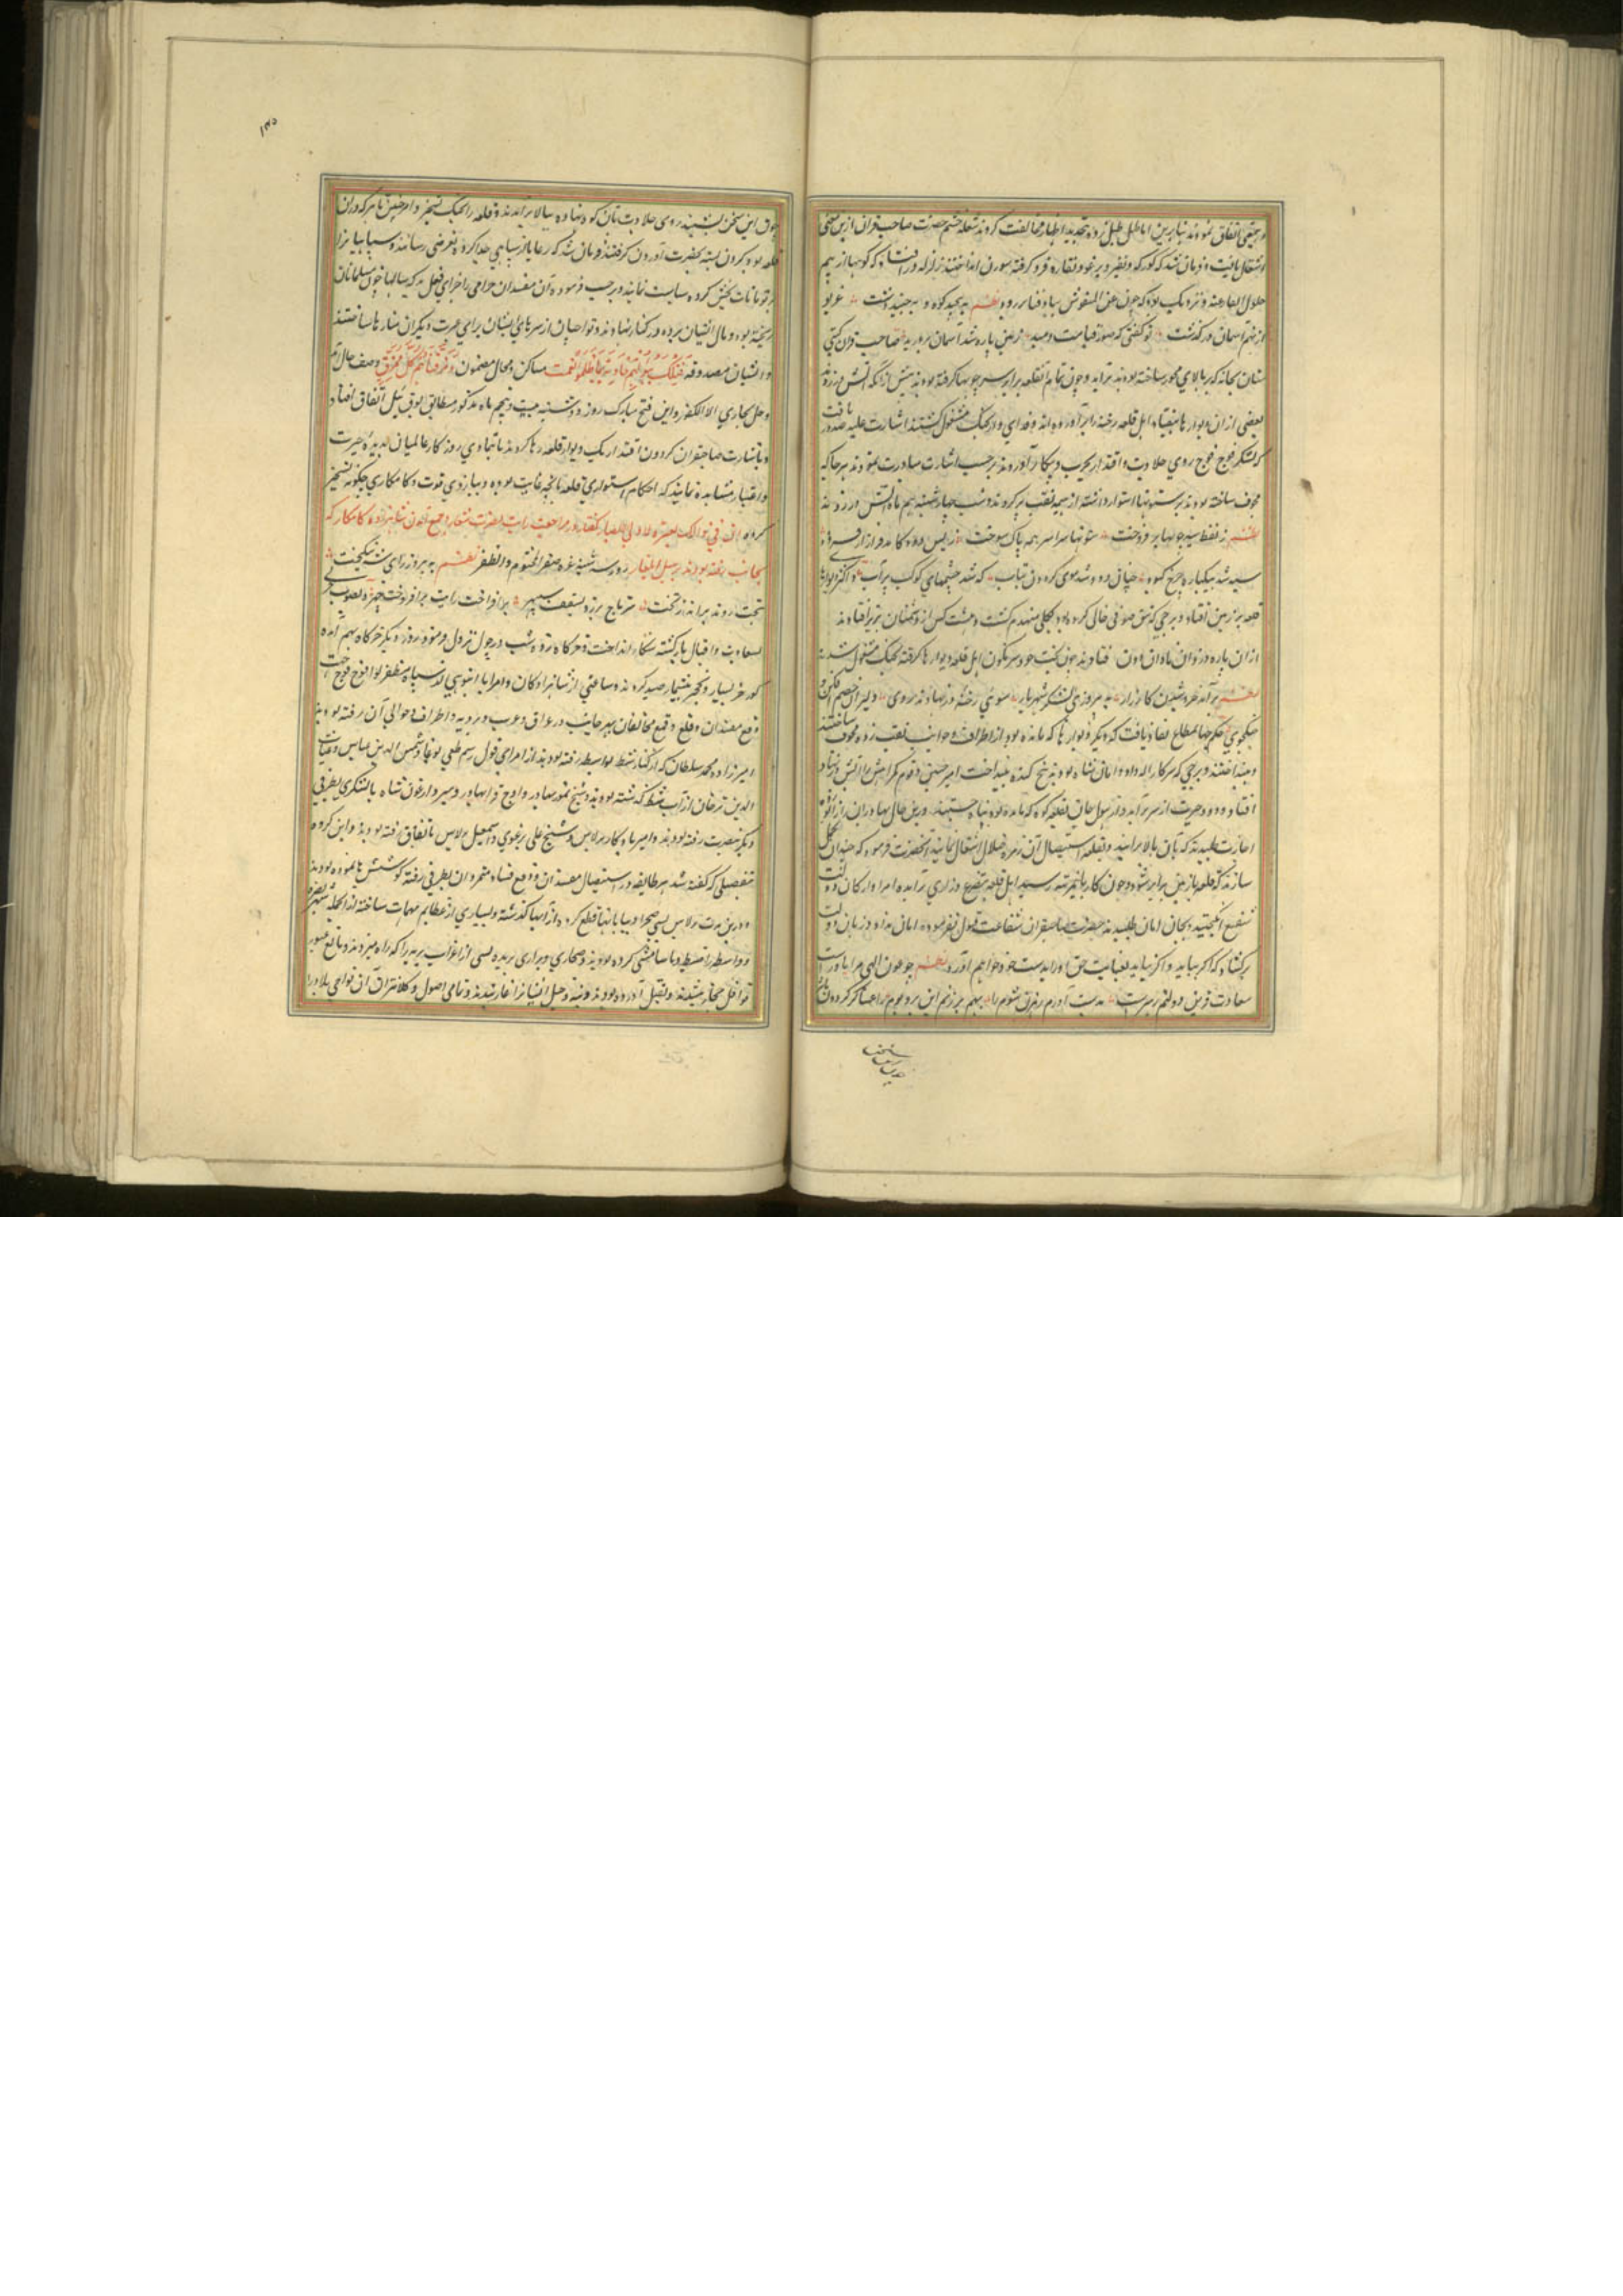 و بحقی اتفاق نموده‌اند بنابرین اباطیل طبل زده تجدید اظهار مخالفت کردند شعله خشم حضرت صاحب قران ازین معنی
اشتعال یافت و فرمان شد که کورکه و نفیر و برغو و نقاره فرو کرفته سورن انداختند زلزله در افتاد که کوهها از بیم
حلول القارعه و نزدیک بود که چون عهن المنفوش بباد فنا بر رود نظم بپیچید کوه و بجنبید دشت غریو
از نهم آسمان در کذشت تو کفتی که صور قیامت دمید زمین پاره شد آسمان بردرید صاحب قران کیتی
ستان بخانه که بر بالای محور ساخته بودند برآمد و چون تمام قلعه برابر سر چوبها کرفته بودند پیش از آنکه آتش در زنند
بعضی از آن دیوارها بیفتاد اهل قلعه رخنه را برآورده‌اند و فدای وار بجنک مشغول کشتند اشارت علیه صدور یافت
که لشکر فوج فوج روی جلادت و اقتدار بحرب و پیکار آوردند برحسب اشارت مبادرت نمودند هرجا که
مجوف ساخته بودند بر ستونها استوار داشته از هیمه نقب پر کردند و شب چهارشنبه بیستم ماه آتش در زدند
نظم ز نفط سیه چوبها بر فروخت ستونها سراسر همه پاک سوخت ز بس دود کامد فراز از فرود
سیه شد بیکباره چرخ کبود چنان دود شد سوی کردون بتاب که شد چشمهای کوکب پر آب و اکثر دیوارها
قلعه بر زمین افتاد و برجی که تمق صوفی خالی کرده بود بکلی منهدم کشت و بیست کس از دشمنان بزیر افتادند
از آن باره دز و آن نادان دون فتادند چون بخت خود سرنکون اهل قلعه دیوارها کرفته بجنک مشغول شدند
نظم برآمد خروشیدن کارزار به پیروزی لشکر شهریار سوی رخنه دز نهادند روی دلیران خصم افکن
جنکجوی حکم جهان مطاع نفاذ یافت که دیکر دیوارها که مانده بود از اطراف و جوانب نقب زده مجوف ساختند
و بینداختند و برجی که سرکار اله‌داد و امان شاه بودند بیخ کنده بینداخت امیر حسن و قوم کمراهش را آتش در نهاد
افتاد و دود حیرت از سر برآمد و از هول جان بقلعه کوه که مانده بود پناه جستند درین حال بهادران
اجازت طلبیدند که بآن بالا برآیند و بقلعه استیصال آن زمره ضلال اشتغال نمایند آنحضرت فرمود که چندان
سازند که قلعه با زمین برابر شود و چون کار بانمرتبه رسید اهل قلعه بتضرع و زاری درآمده امرا و ارکان دولت
شفیع انکیختند و بجان امان طلبیدند حضرت صاحبقران شفاعت قبول نفرموده امان نداد و زبان دولت
برکشاد که اکر بیاید و اکر نیاید بعنایت حق او را بدست خواهم آورد نظم چو عون الهی مرا یاورست
سعادت قرین دولتم رهبرست بدست آورم رهزن شوم را بهم برزنم این بر و بوم را عساکر کردون
۱۳۵
چون این سخن بشنیدند روی جلادت بآن کوه نهاده ببالا برآمدند و قلعه را بجنک تسخیر و امیر حسن با هرکه در آن
قلعه بود کردن بسته بحضرت آوردند کرفتند فرمان شد که رعایا از سپاهی جدا کرده بعرضی رسانند و سپاهیانرا
بر تومانات بخش کرده سیاست نمایند و برحسب فرموده آن مفسدان حرامی را جزای فعل بد که سالها خون مسلمانان
ریخته بود و مال ایشان برده در کنار نهادند و تواچیان از سرهای ایشان برای عبرت دیکران منارها ساختند
و ایشان مصدوقه فَتِلْکَ بُیُوتُهُمْ خَاوِیَةً بِمَا ظَلَمُوا سمت مساکن و محال مضمون وَمَزَّقْنَاهُمْ کُلَّ مُمَزَّقٍ وصف حال آمد
و هل نجازی الا الکفور و این فتح مبارک روز دوشنبه بیست و پنجم ماه مذکور مطابق لوی ئیل اتفاق افتاد
و باشارت صاحبقران کردون اقتدار یک دیوار قلعه رها کردند تا بتمادی روزکار عالمیان بدیده حیرت
و اعتبار مشاهده نمایند که احکام استواری قلعه تا بچه غایت بوده و ببازوی قوت و کامکاری چکونه تسخیر
کرده‌اند ان فی ذلک لعبرة لاولی الابصار کفتار در مراجعت رایت نصرت شعار و جمع شدن شاهزاده کامکار که
بجانب رفته بودند بر سبیل ایلغار روز سه‌شنبه غره صفر المختوم والظفر نظم به پیروز رای شه نیکبخت
بتخت رونده برآمد ز تخت سر تاج برزد بسقف سپهر برافراخت رایت برافروخت چهره بصوب
سعادت و اقبال بازکشته شکار انداخت و خرکاه زده شب در چول نزول فرمود و روز دیکر جرکاه بهم آمده
کورخر بسیار و نخجیر بیشمار صید کردند و ساعتی از شاهزادکان و امرا با انبوهی از سپاه مظفر لوا فوج فوج جهت
دفع مفسدان و قلع و قمع مخالفان بهر جانب در عراق عرب و بریه و اطراف و حوالی آن رفته بودند
امیرزاده محمد سلطان که از کنار شط بواسط رفته بودند از امرای قول رستم طغی بوغا و شمس الدین عباس و غیاث
الدین ترخان از آب شط کذشته بودند و شیخ تمور بهادر و اوج قرا بهادر و میر و ارغون شاه با لشکری بطرفی
دیکر ببصره رفته بودند و امیر یادکار برلاس و شیخ علی برغوی و اسمعیل برلاس باتفاق رفته بودند و این کروه
بتفصیلی که کفته شد هر طایفه در استیصال مفسدان و دفع فساد متمردان بطرفی رفته کوششها نموده بودند
و درین مدت بسی صحرا و بیابانها قطع کرده از آبها کذشته و بسیاری از عظایم مهمات ساخته از آنجمله شهر بصره
و واسط را ضبط و تاسامشی کرده بودند و صحاری و براری بریده بسی از اعراب بریه را که راه میزدند و مانع عبور
قوافل حجاز میشدند بقتل آورده بودند و بنه و خیل ایشانرا غارتیدند و تمامی اصول و کلانتران آن نواحی بلاد را